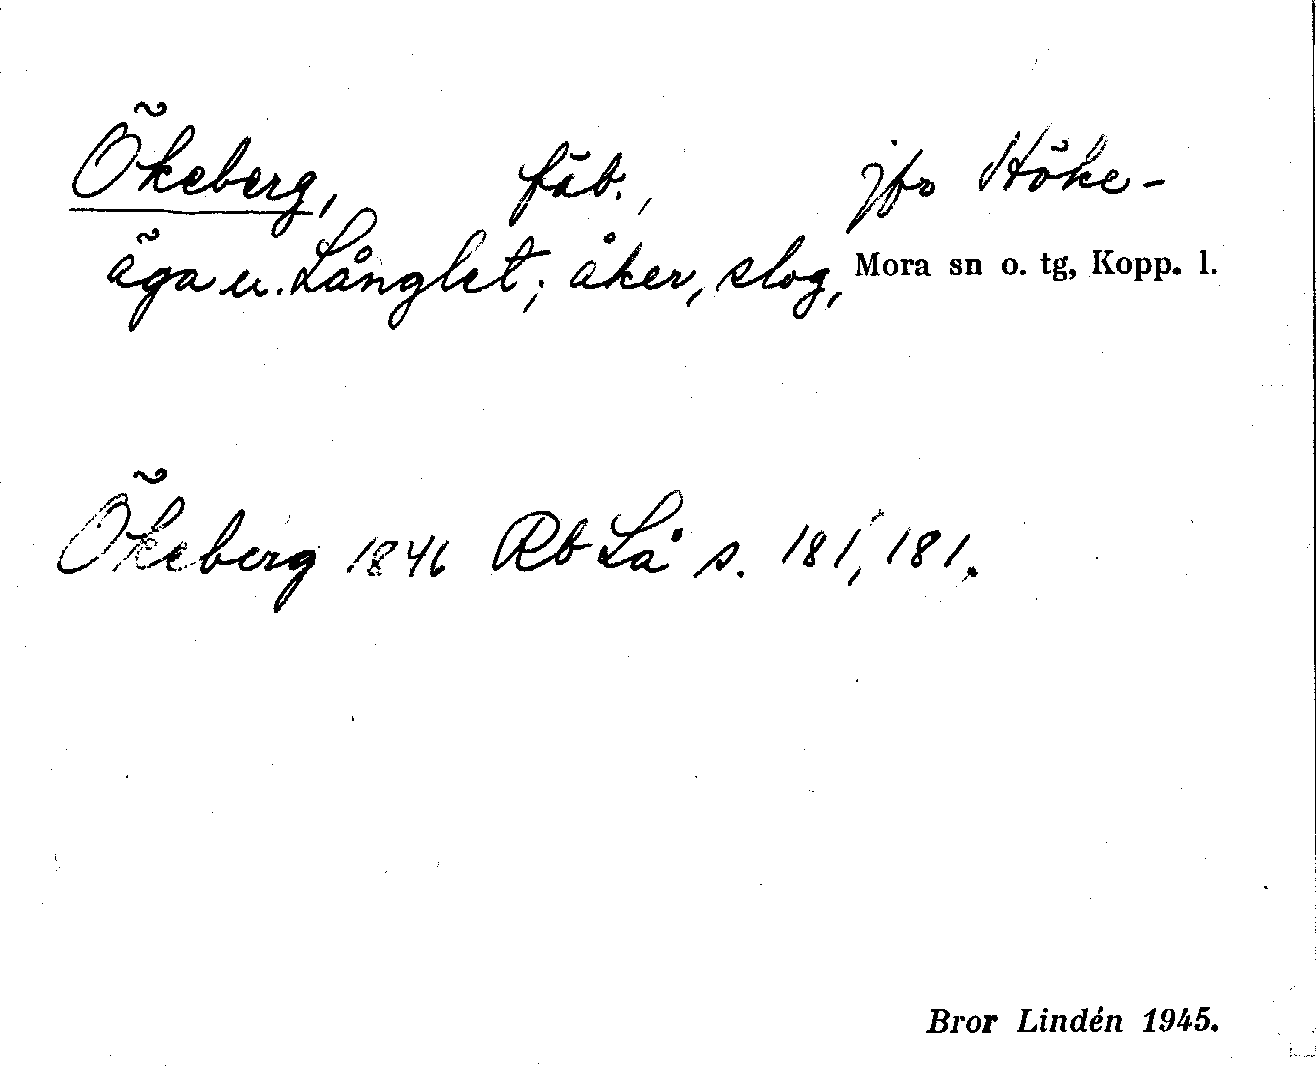 Ökeberg, fäb., jfr Höke-
äga u. Långlet; åker, slog, Mora sn o. tg, Kopp. l.
Ökeberg 1846 Rb Lå s. 181, 181.
Bror Lindén 1945.